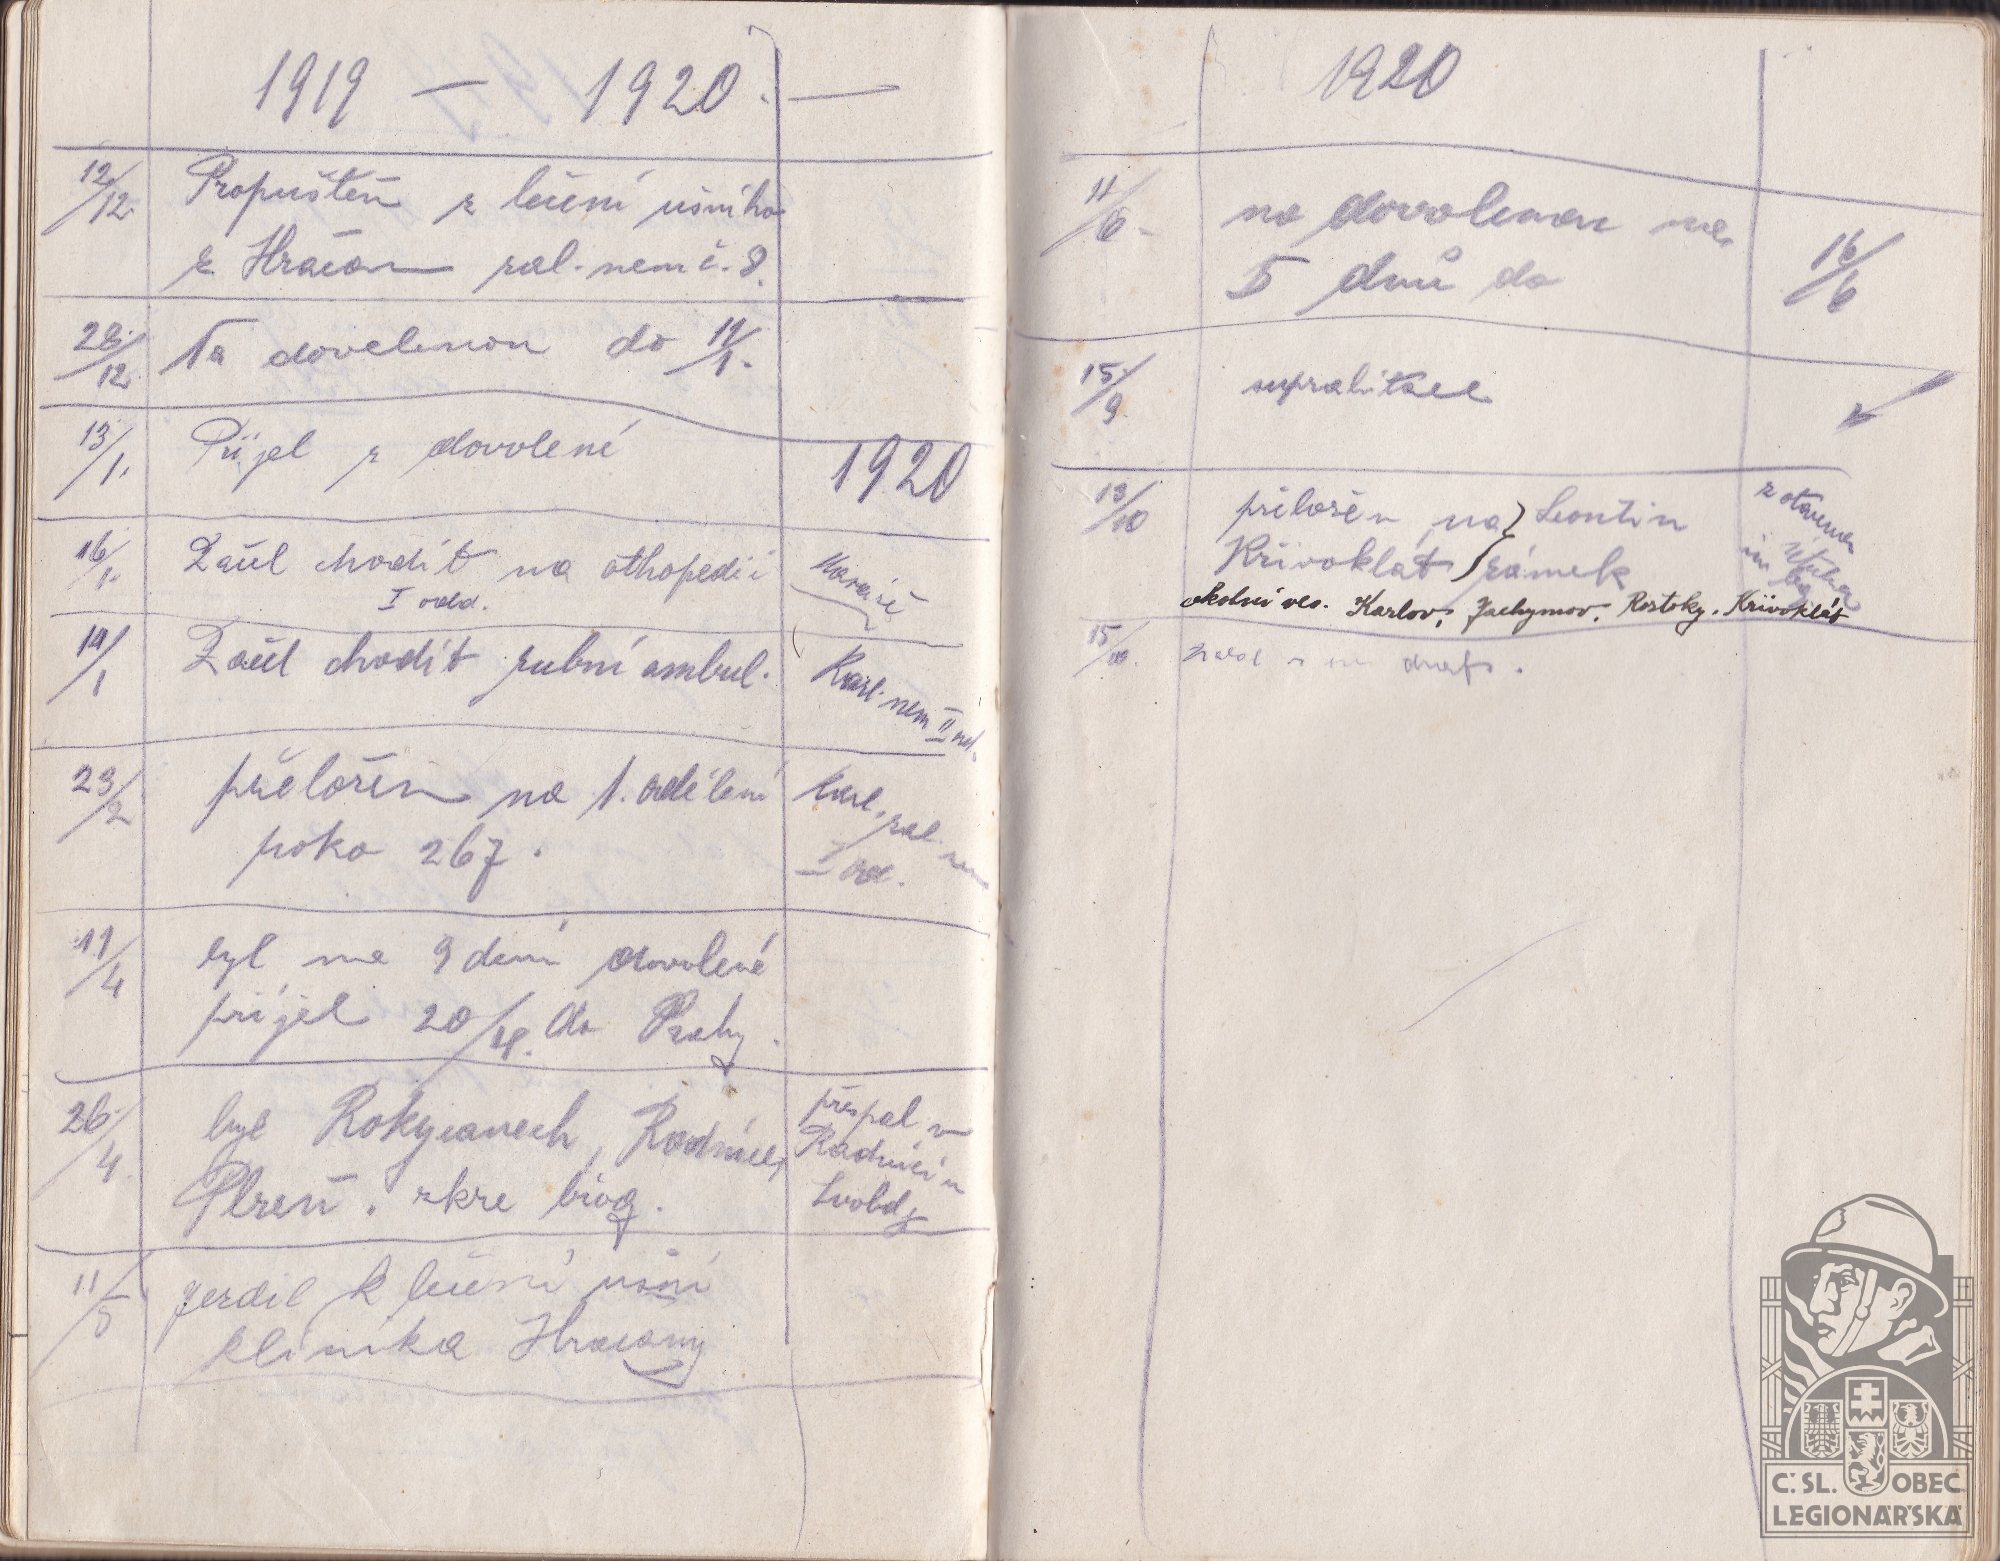 1919 — 1920. —
12/12. Propuštěn z léčení ušního
z Hračan zal. nem č. 8.
28/12 Na dovelenou do 11/1.
13/1. Přijel z dovolené
1920
16/1. Začal chodit na othopedii
I odd.
19/1 Začal chodit zubní ambul.
Karl. nem II od.
23/2 přeložen na 1. oděleni
poko 267.
Karl. zal. nem
I od.
11/4 byl na 9 dení dovolené
přijel 20/4. do Prahy.
26/4. byl Rokycanech, Radnice,
Plzeň. skre biog.
přespal v
Radnici u
Svobdy
11/5 jezdil k léčení ušní
klinika Hračany
1920
11/6. na dovolenou na
5 dnů do
16/6
15/9. suprabitace
13/10 přiložen na } Leontin
Křivoklát } zámek
okolní ves. Karlov, Jachymov, Roztoky. Křivoklát
15/10.
Č. SL. OBEC
LEGIONÁŘSKÁ